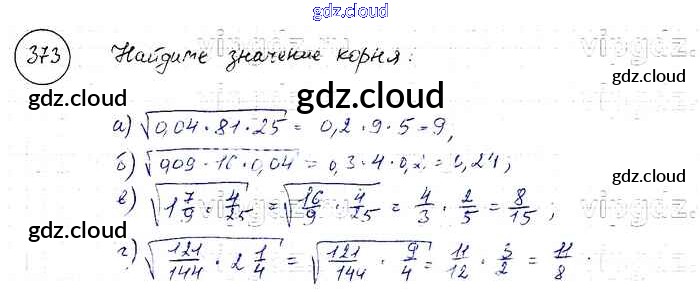 gdz.cloud
373 Найдите значение корня:
gdz.cloud gdz.cloud gdz.cloud
а) √(0,04 · 81 · 25) = 0,2 · 9 · 5 = 9,
б) √(0,09 · 16 · 0,04) = 0,3 · 4 · 0,2 = 0,24;
в) √(1 7/9 · 4/25) = √(16/9 · 4/25) = 4/3 · 2/5 = 8/15;
gdz.cloud gdz.cloud
г) √(121/144 · 2 1/4) = √(121/144 · 9/4) = 11/12 · 3/2 = 11/8.
gdz.cloud